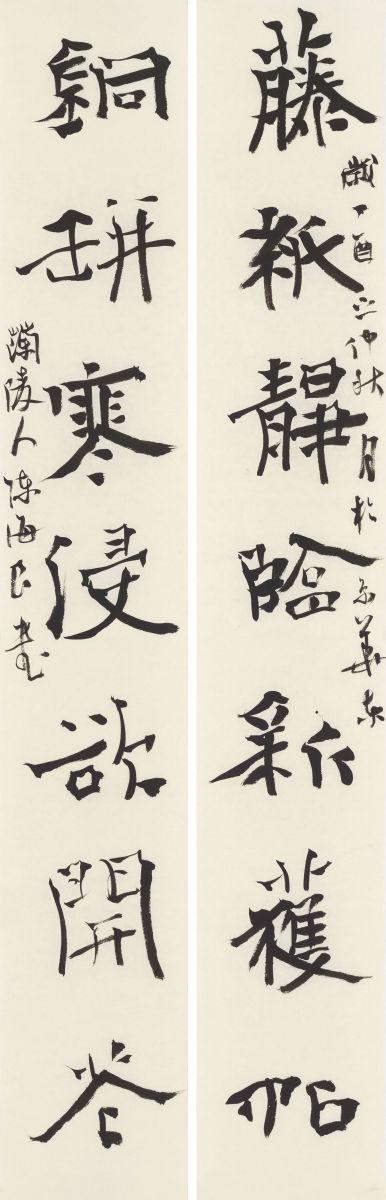 藤紙靜臨新獲帖
歲丁酉之仲秋月於京華東
銅缾寒浸欲開花
蘭陵人陳海良書